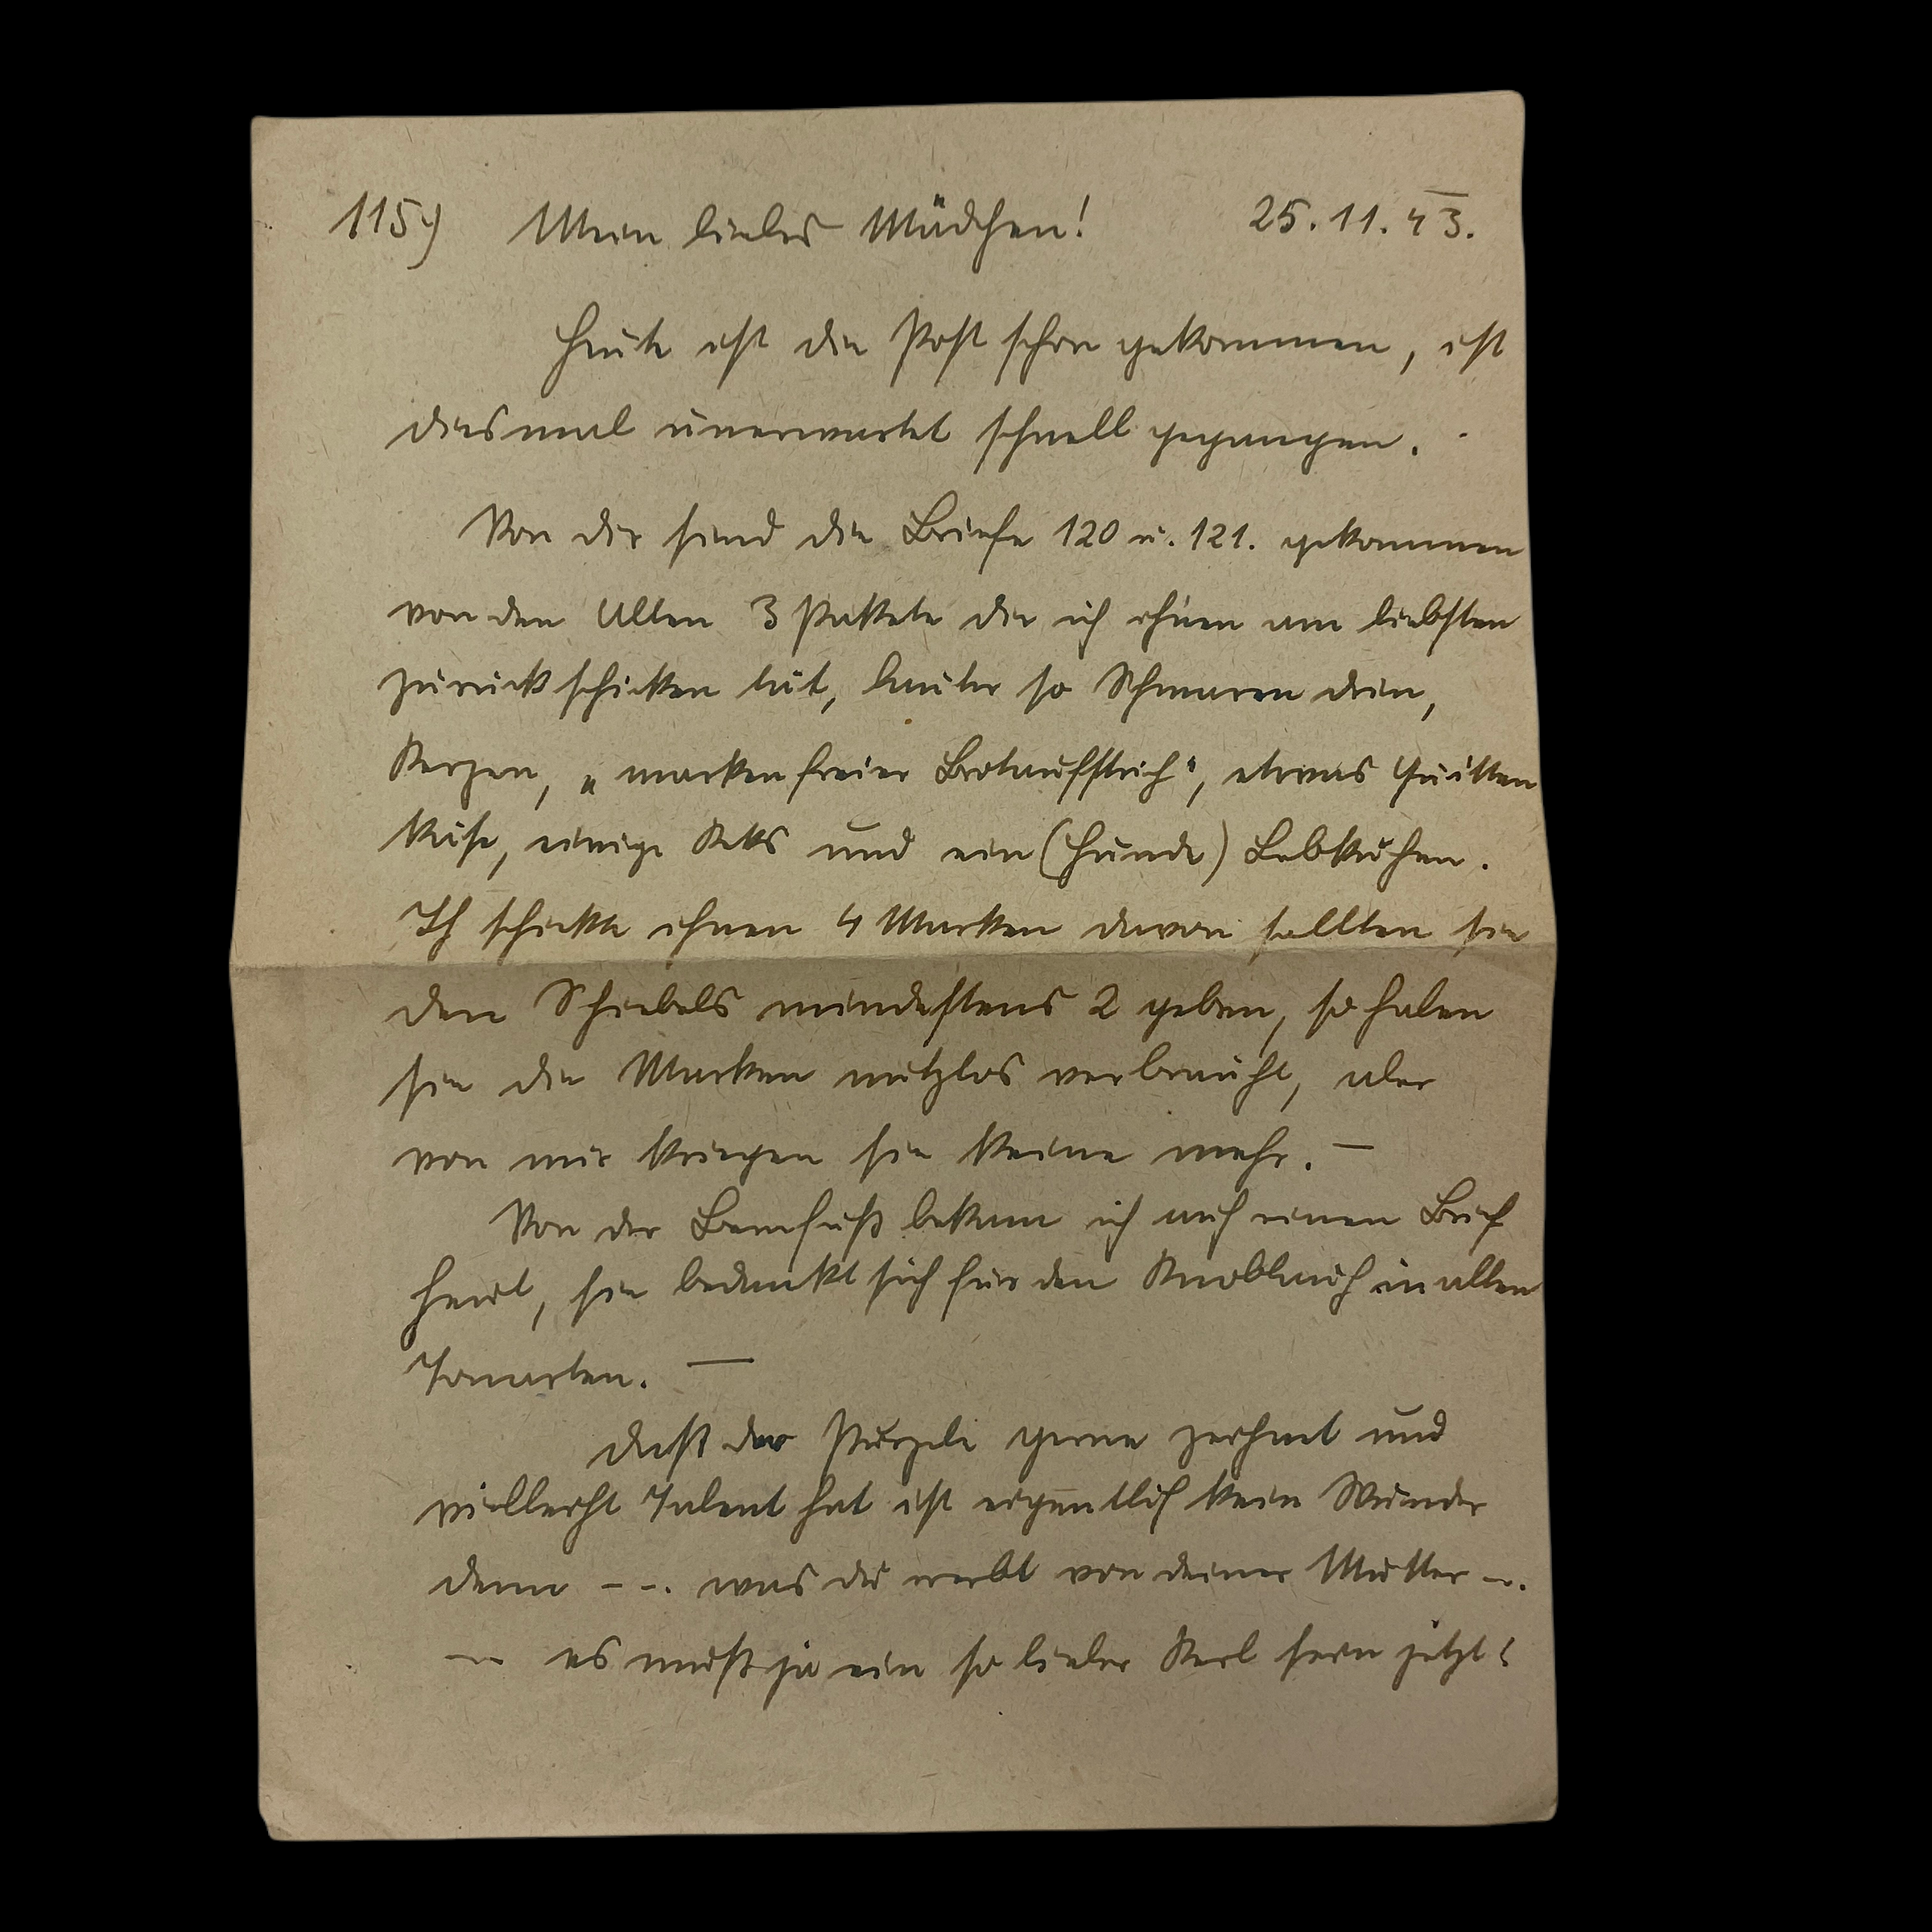 115) Mein liebes Mädchen! 25.11.43.
Heute ist die Post schon gekommen, ist
diesmal unerwartet schnell gegangen.
Von dir sind die Briefe 120 u. 121. gekommen
von den Alten 3 Pakete die ich ihnen am liebsten
zurückschicken tät, lauter so Schmaren drin,
Kerzen, „markenfreier Brotaufstrich", etwas Quitten
käse, einige Keks und ein (Hunde) Lebkuchen.
Ich schickte ihnen 4 Marken davon sollten sie
den Schiebels mindestens 2 geben, so haben
sie die Marken nutzlos verbraucht, aber
von mir kriegen sie keine mehr. —
Von der bekam ich auch einen Brief
heut, sie bedankt sich für den Knoblauch in allen
Tonarten. —
Dass der Purzeli gerne zeichnet und
vielleicht Talent hat ist eigentlich kein Wunder
denn - - . was du erbt von deiner Mutter - .
— es muss ja ein so lieber Kerl sein jetzt!